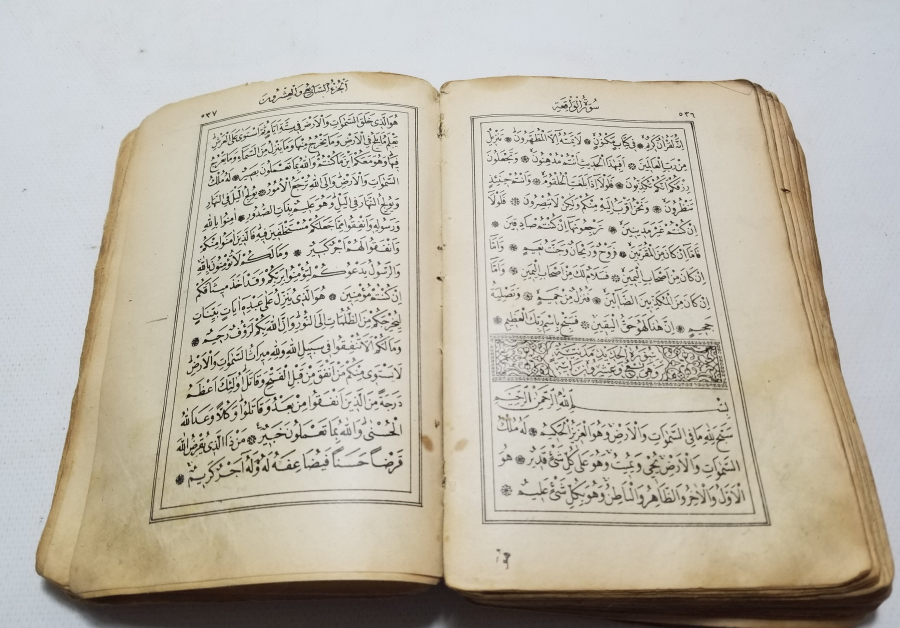 سُورَةُ الْوَاقِعَةِ
٥٣٦
إِنَّهُ لَقُرْاٰنٌ كَرِيمٌ ❋ فِى كِتَابٍ مَكْنُونٍ ❋ لَا يَمَسُّهُ اِلَّا الْمُطَهَّرُونَ ❋ تَنْزِيلٌ
مِنْ رَبِّ الْعَالَمِينَ ❋ اَفَبِهٰذَا الْحَدِيثِ اَنْتُمْ مُدْهِنُونَ ❋ وَتَجْعَلُونَ
رِزْقَكُمْ اَنَّكُمْ تُكَذِّبُونَ ❋ فَلَوْلَا اِذَا بَلَغَتِ الْحُلْقُومَ ❋ وَاَنْتُمْ حِينَئِذٍ
تَنْظُرُونَ ❋ وَنَحْنُ اَقْرَبُ اِلَيْهِ مِنْكُمْ وَلٰكِنْ لَا تُبْصِرُونَ ❋ فَلَوْلَا
اِنْ كُنْتُمْ غَيْرَ مَدِينِينَ ❋ تَرْجِعُونَهَا اِنْ كُنْتُمْ صَادِقِينَ ❋
فَاَمَّا اِنْ كَانَ مِنَ الْمُقَرَّبِينَ ❋ فَرَوْحٌ وَرَيْحَانٌ وَجَنَّتُ نَعِيمٍ ❋ وَاَمَّا
اِنْ كَانَ مِنْ اَصْحَابِ الْيَمِينِ ❋ فَسَلَامٌ لَكَ مِنْ اَصْحَابِ الْيَمِينِ ❋ وَاَمَّا
اِنْ كَانَ مِنَ الْمُكَذِّبِينَ الضَّالِّينَ ❋ فَنُزُلٌ مِنْ حَمِيمٍ ❋ وَتَصْلِيَةُ
جَحِيمٍ ❋ اِنَّ هٰذَا لَهُوَ حَقُّ الْيَقِينِ ❋ فَسَبِّحْ بِاسْمِ رَبِّكَ الْعَظِيمِ ❋
سُورَةُ الْحَدِيدِ مَدَنِيَّةٌ
وَهِىَ تِسْعٌ وَعِشْرُونَ اٰيَةً
بِسْمِ اللّٰهِ الرَّحْمٰنِ الرَّحِيمِ
سَبَّحَ لِلّٰهِ مَا فِى السَّمٰوَاتِ وَالْاَرْضِ وَهُوَ الْعَزِيزُ الْحَكِيمُ ❋ لَهُ مُلْكُ
السَّمٰوَاتِ وَالْاَرْضِ يُحْيِى وَيُمِيتُ وَهُوَ عَلٰى كُلِّ شَىْءٍ قَدِيرٌ ❋ هُوَ
الْاَوَّلُ وَالْاٰخِرُ وَالظَّاهِرُ وَالْبَاطِنُ وَهُوَ بِكُلِّ شَىْءٍ عَلِيمٌ ❋
هُوَ
اَلْجُزْءُ السَّابِعُ وَالْعِشْرُونَ
٥٣٧
هُوَ الَّذِى خَلَقَ السَّمٰوَاتِ وَالْاَرْضَ فِى سِتَّةِ اَيَّامٍ ثُمَّ اسْتَوٰى عَلَى الْعَرْشِ
يَعْلَمُ مَا يَلِجُ فِى الْاَرْضِ وَمَا يَخْرُجُ مِنْهَا وَمَا يَنْزِلُ مِنَ السَّمَاءِ وَمَا يَعْرُجُ
فِيهَا وَهُوَ مَعَكُمْ اَيْنَ مَا كُنْتُمْ وَاللّٰهُ بِمَا تَعْمَلُونَ بَصِيرٌ ❋ لَهُ مُلْكُ
السَّمٰوَاتِ وَالْاَرْضِ وَاِلَى اللّٰهِ تُرْجَعُ الْاُمُورُ ❋ يُولِجُ الَّيْلَ فِى النَّهَارِ
وَيُولِجُ النَّهَارَ فِى الَّيْلِ وَهُوَ عَلِيمٌ بِذَاتِ الصُّدُورِ ❋ اٰمِنُوا بِاللّٰهِ
وَرَسُولِهِ وَاَنْفِقُوا مِمَّا جَعَلَكُمْ مُسْتَخْلَفِينَ فِيهِ فَالَّذِينَ اٰمَنُوا مِنْكُمْ
وَاَنْفَقُوا لَهُمْ اَجْرٌ كَبِيرٌ ❋ وَمَا لَكُمْ لَا تُؤْمِنُونَ بِاللّٰهِ
وَالرَّسُولُ يَدْعُوكُمْ لِتُؤْمِنُوا بِرَبِّكُمْ وَقَدْ اَخَذَ مِيثَاقَكُمْ
اِنْ كُنْتُمْ مُؤْمِنِينَ ❋ هُوَ الَّذِى يُنَزِّلُ عَلٰى عَبْدِهِ اٰيَاتٍ بَيِّنَاتٍ
لِيُخْرِجَكُمْ مِنَ الظُّلُمَاتِ اِلَى النُّورِ وَاِنَّ اللّٰهَ بِكُمْ لَرَؤُفٌ رَحِيمٌ ❋
وَمَا لَكُمْ اَلَّا تُنْفِقُوا فِى سَبِيلِ اللّٰهِ وَلِلّٰهِ مِيرَاثُ السَّمٰوَاتِ وَالْاَرْضِ
لَا يَسْتَوِى مِنْكُمْ مَنْ اَنْفَقَ مِنْ قَبْلِ الْفَتْحِ وَقَاتَلَ اُولٰئِكَ اَعْظَمُ
دَرَجَةً مِنَ الَّذِينَ اَنْفَقُوا مِنْ بَعْدُ وَقَاتَلُوا وَكُلًّا وَعَدَ اللّٰهُ
الْحُسْنٰى وَاللّٰهُ بِمَا تَعْمَلُونَ خَبِيرٌ ❋ مَنْ ذَا الَّذِى يُقْرِضُ اللّٰهَ
قَرْضًا حَسَنًا فَيُضَاعِفَهُ لَهُ وَلَهُ اَجْرٌ كَرِيمٌ ❋